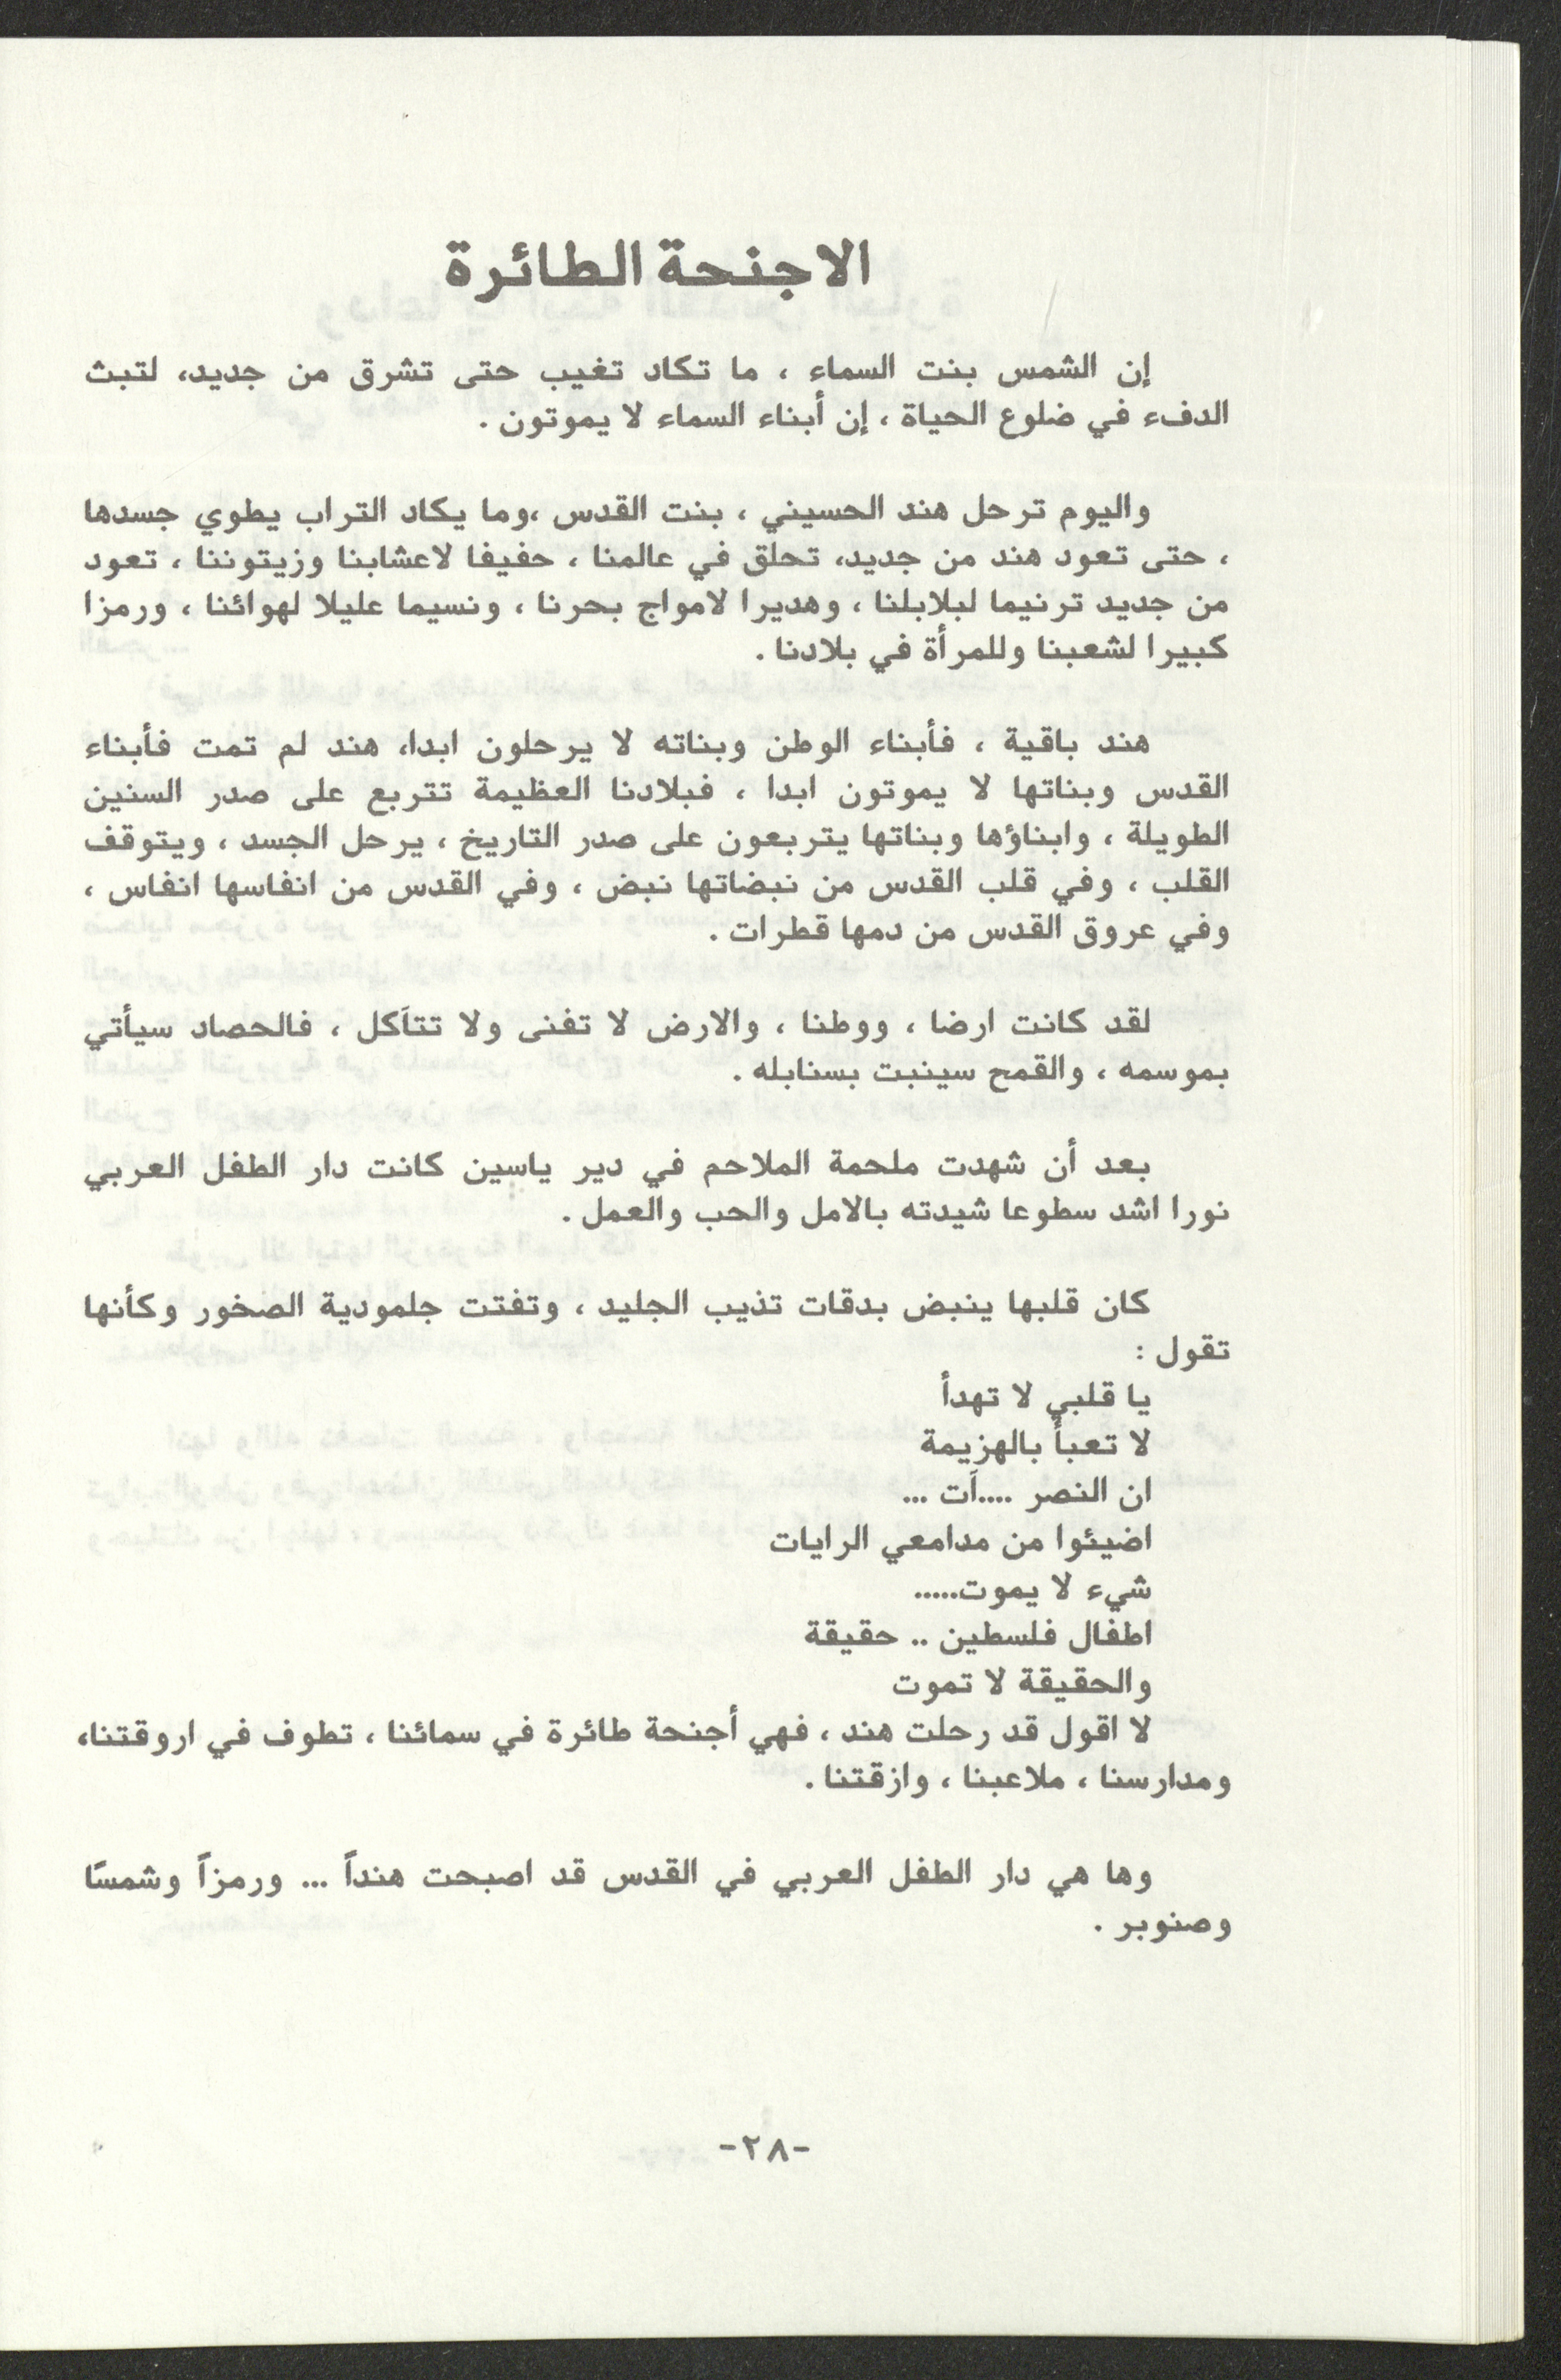 الاجنحة الطائرة
إن الشمس بنت السماء ، ما تكاد تغيب حتى تشرق من جديد، لتبث
الدفء في ضلوع الحياة ، إن أبناء السماء لا يموتون .
واليوم ترحل هند الحسيني ، بنت القدس ،وما يكاد التراب يطوي جسدها
، حتى تعود هند من جديد، تحلق في عالمنا ، حفيفا لاعشابنا وزيتوننا ، تعود
من جديد ترنيما لبلابلنا ، وهديرا لامواج بحرنا ، ونسيما عليلا لهوائنا ، ورمزا
كبيرا لشعبنا وللمرأة في بلادنا .
هند باقية ، فأبناء الوطن وبناته لا يرحلون ابدا، هند لم تمت فأبناء
القدس وبناتها لا يموتون ابدا ، فبلادنا العظيمة تتربع على صدر السنين
الطويلة ، وابناؤها وبناتها يتربعون على صدر التاريخ ، يرحل الجسد ، ويتوقف
القلب ، وفي قلب القدس من نبضاتها نبض ، وفي القدس من انفاسها انفاس ،
وفي عروق القدس من دمها قطرات .
لقد كانت ارضا ، ووطنا ، والارض لا تفنى ولا تتآكل ، فالحصاد سيأتي
بموسمه ، والقمح سينبت بسنابله .
بعد أن شهدت ملحمة الملاحم في دير ياسين كانت دار الطفل العربي
نورا اشد سطوعا شيدته بالامل والحب والعمل .
كان قلبها ينبض بدقات تذيب الجليد ، وتفتت جلمودية الصخور وكأنها
تقول :
يا قلبي لا تهدأ
لا تعبأ بالهزيمة
ان النصر ....آت ...
اضيئوا من مدامعي الرايات
شيء لا يموت.....
اطفال فلسطين .. حقيقة
والحقيقة لا تموت
لا اقول قد رحلت هند ، فهي أجنحة طائرة في سمائنا ، تطوف في اروقتنا،
ومدارسنا ، ملاعبنا ، وازقتنا .
وها هي دار الطفل العربي في القدس قد اصبحت هنداً ... ورمزاً وشمسًا
وصنوبر .
-٢٨-